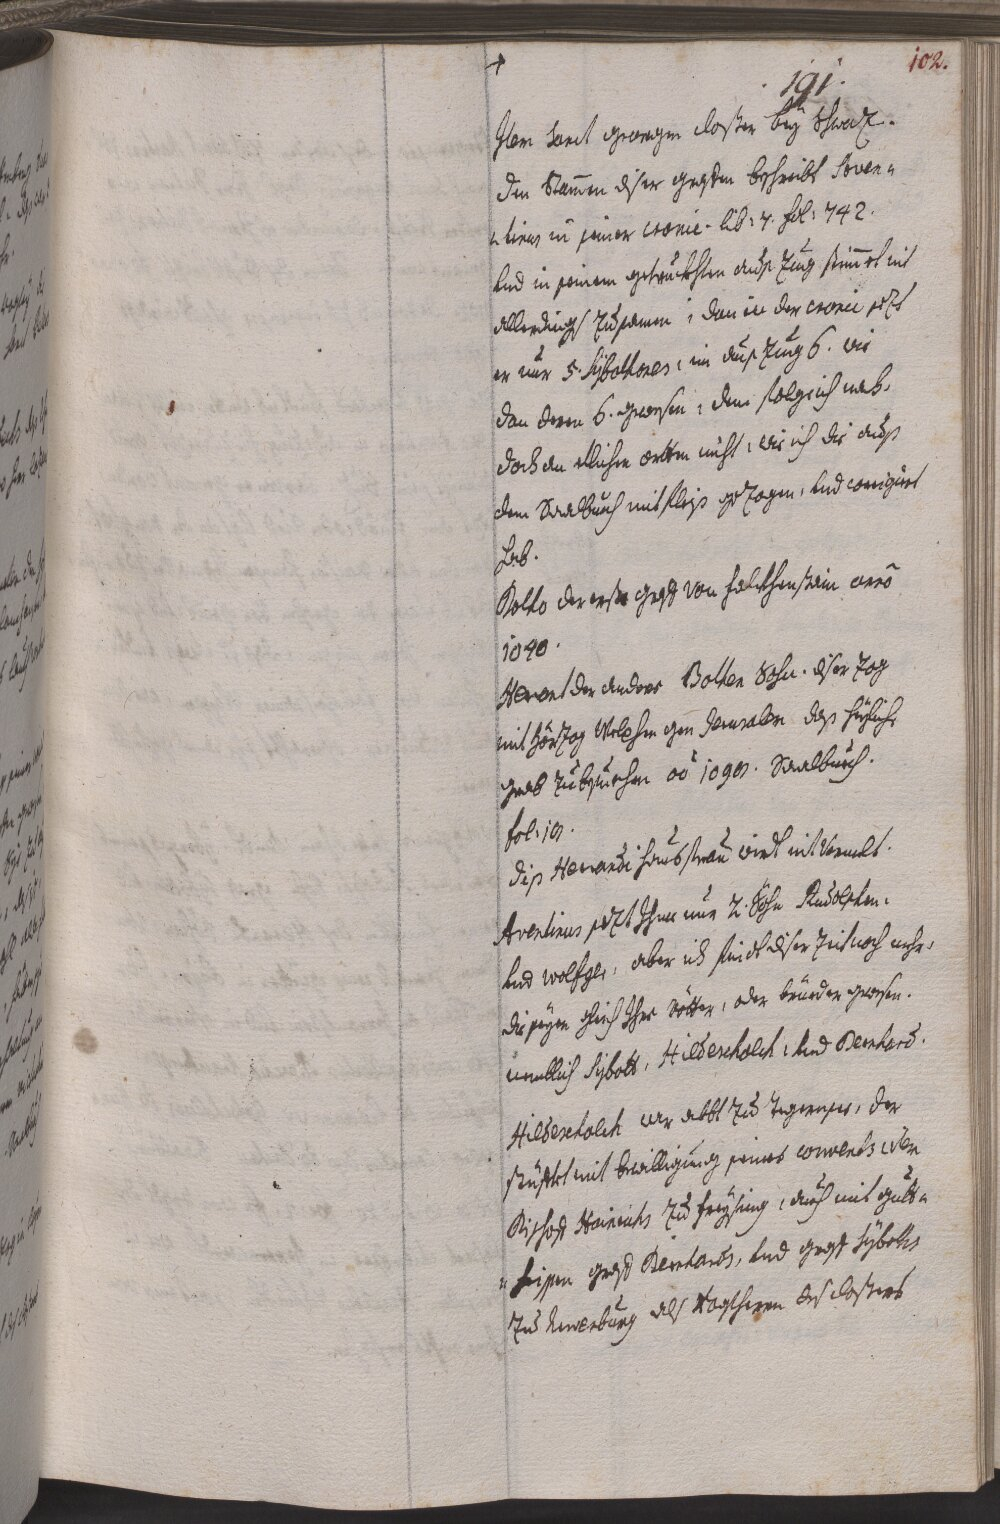 102.
191.
Item Sanct Georgen closter bey Schwaz.
Den Stammen diser graffen beschreibt Aven-
tinus in seiner cronic. lib: 7. fol: 742.
und in seinem getruckhten auszug stimbt nit
allerdings zusamen, dan in der cronic sezt
er nur 5. Sybothones, im auszug 6. wie
dan deren 6. gewesen,
doch an etlichen orten nicht, wie ich die auß
dem Saalbuch mit fleiß gezogen, und corrigiert
hab.
Botto der erste graff von Falckhenstain anno
1090.
Herrant der ander Botten Sohn. diser zog
mit Hörzog Welphen gen Jerusalem das heylich
grab zubesuechen aō 1098. Saalbuech.
fol: 18.
diß Herrandi hausfrau wirdt nit vermelt.
Aventinus sezt Ihme nur 2. Söhn Rudolphen,
und Wolfger, aber ich find diser zeit noch mehr,
die seyen gleich Ihre vötter, oder brüeder gewesen.
nemblich Sybott, Hilderscholch, und Bernhard.
Hilderscholch war abbt zu Tegernsee, der
stüfftet mit bewilligung seines convents, der
Bischoff Heinrichs zu Freysing, auch mit guet-
haissen graff Bernhards, und graff Sybotts
zu Newenburg als Vogtherrn des closters